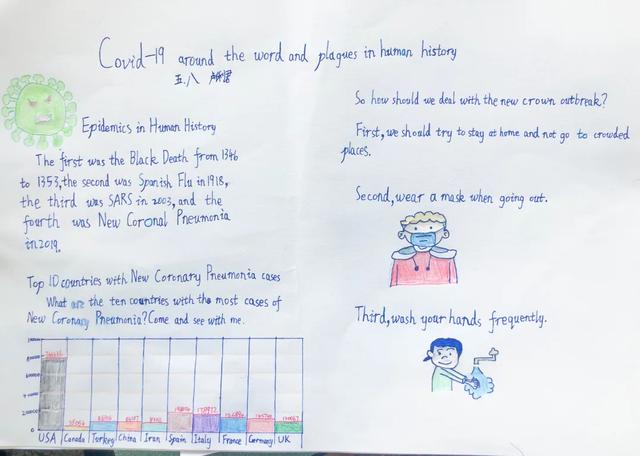 Covid-19 around the word and plagues in human history
五.八
Epidemics in Human History
The first was the Black Death from 1346
to 1353,the second was Spanish Flu in 1918,
the third was SARS in 2003,and the
fourth was New Coronal Pneumonia
in 2019.
Top 10 countries with New Coronary Pneumonia cases
What are the ten countries with the most cases of
New Coronary Pneumonia?Come and see with me.
USA Canada Turkey China Iran Spain Italy France Germany UK
So how should we deal with the new crown outbreak?
First, we should try to stay at home and not go to crowded
places.
Second,wear a mask when going out.
Third,wash your hands frequently.